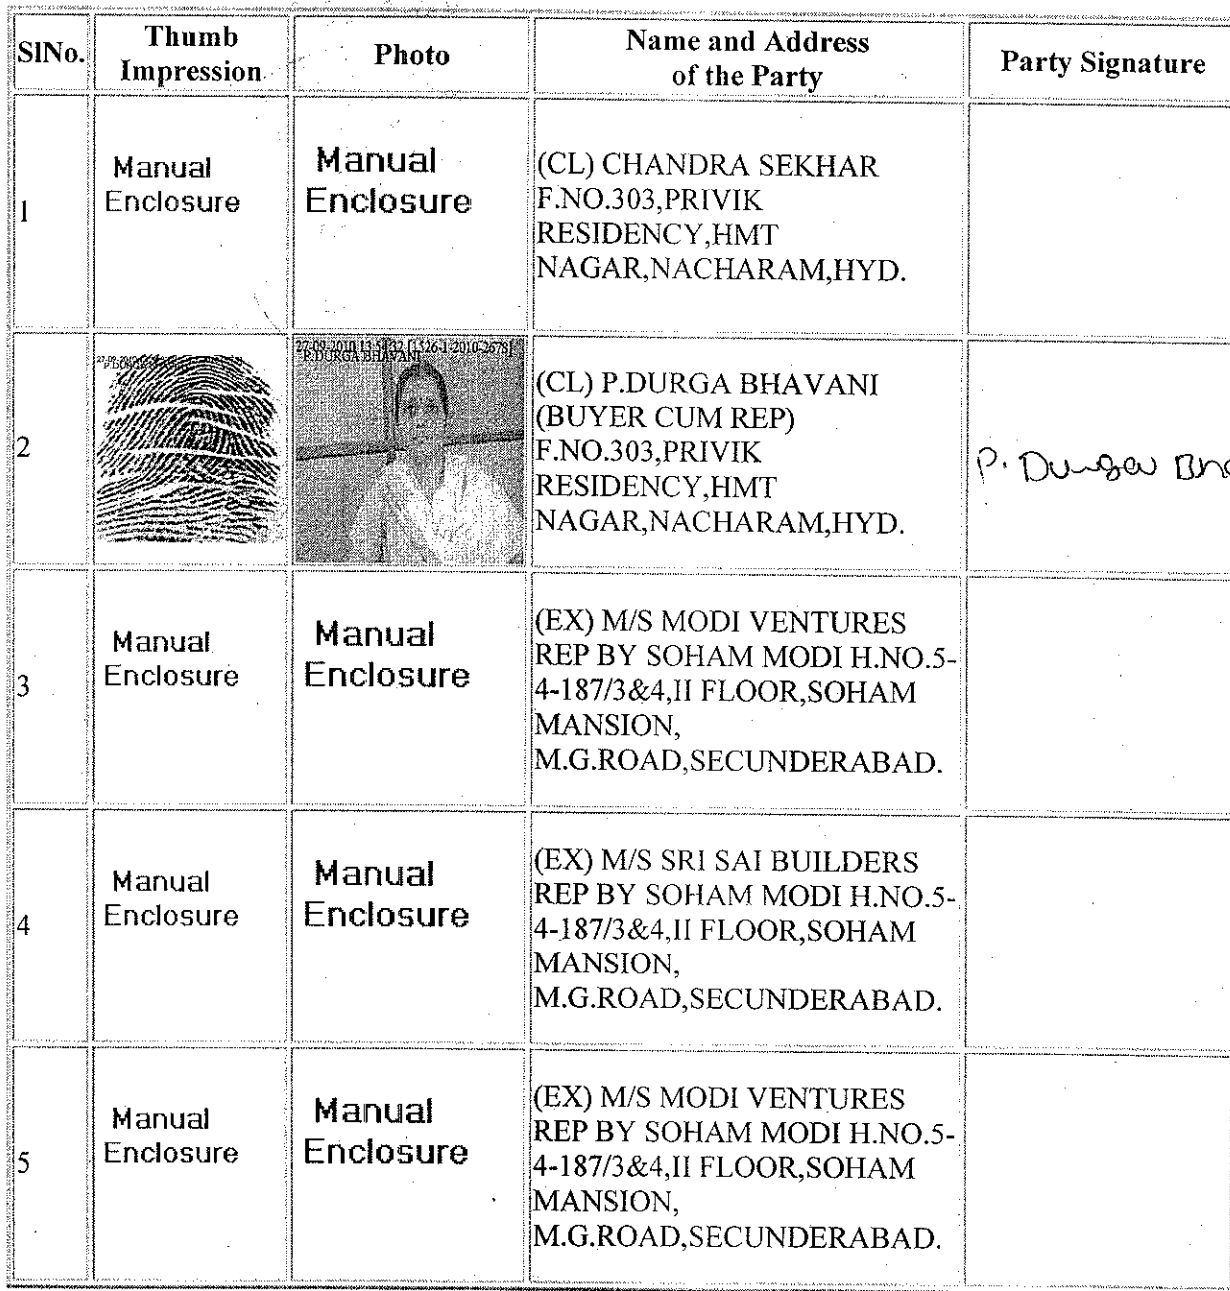 SlNo. Thumb Impression Photo Name and Address of the Party Party Signature
1
Manual
Enclosure
Manual
Enclosure
(CL) CHANDRA SEKHAR
F.NO.303,PRIVIK
RESIDENCY,HMT
NAGAR,NACHARAM,HYD.
2
27-09-2010 13:54:32 [1526-1-2010-2678]
P.DURGA BHAVANI
(CL) P.DURGA BHAVANI
(BUYER CUM REP)
F.NO.303,PRIVIK
RESIDENCY,HMT
NAGAR,NACHARAM,HYD.
P. Durga Bha
3
Manual
Enclosure
Manual
Enclosure
(EX) M/S MODI VENTURES
REP BY SOHAM MODI H.NO.5-
4-187/3&4,II FLOOR,SOHAM
MANSION,
M.G.ROAD,SECUNDERABAD.
4
Manual
Enclosure
Manual
Enclosure
(EX) M/S SRI SAI BUILDERS
REP BY SOHAM MODI H.NO.5-
4-187/3&4,II FLOOR,SOHAM
MANSION,
M.G.ROAD,SECUNDERABAD.
5
Manual
Enclosure
Manual
Enclosure
(EX) M/S MODI VENTURES
REP BY SOHAM MODI H.NO.5-
4-187/3&4,II FLOOR,SOHAM
MANSION,
M.G.ROAD,SECUNDERABAD.